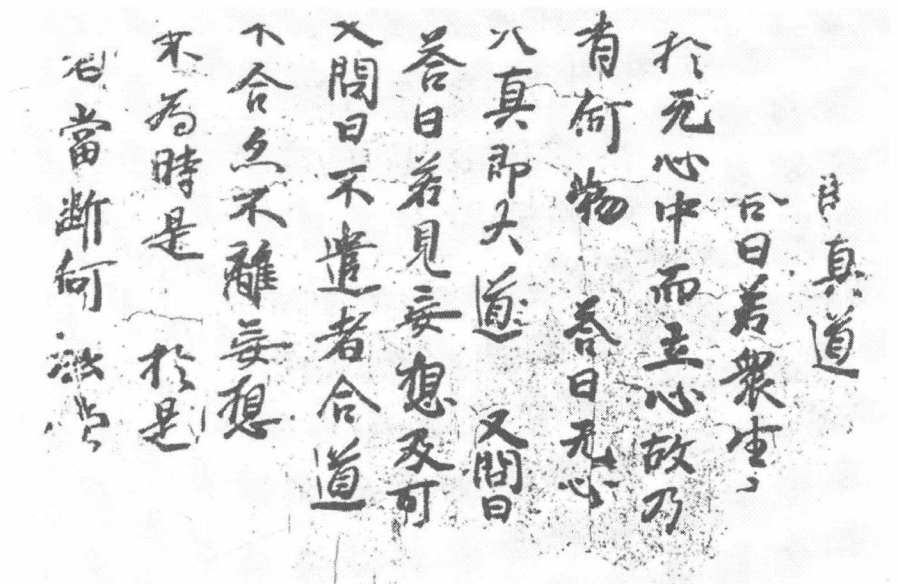 真道
曰若衆生
於无心中而立心故乃
有何物 答曰无心
真即大道 又問曰
答曰若見妄想及可
又問曰不遣者合道
不合亦不離妄想
為時是 於是
當断何